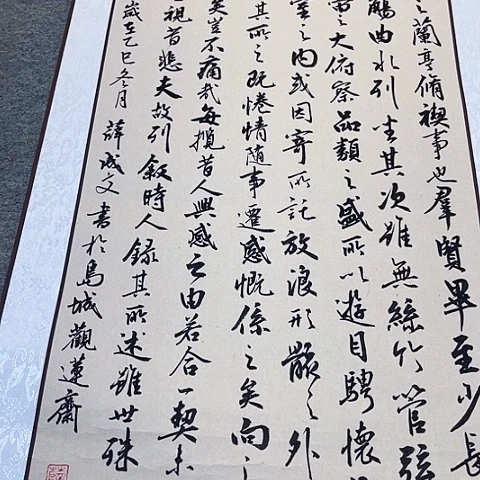 之蘭亭脩禊事也羣賢畢至少長
觴曲水列坐其次雖無絲竹管弦
宙之大俯察品類之盛所以遊目騁懷
室之內或因寄所託放浪形骸之外
其所之既惓情隨事遷感慨係之矣向
矣豈不痛哉每攬昔人興感之由若合一契未
視昔悲夫故列敘時人錄其所述雖世殊
歲在乙巳冬月 薛成文書於島城觀蓮齋